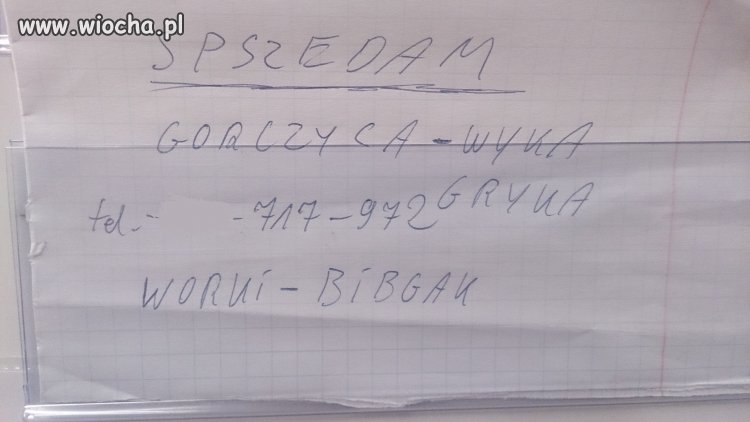 www.wiocha.pl
SPSZEDAM
GORCZYCA-WYKA
GRYKA
tel.- -717-972
WORKI-BIBGAK